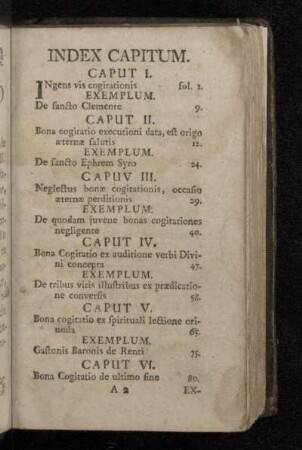 INDEX CAPITUM.
CAPUT I.
INgens vis cogitationis fol. 1.
EXEMPLUM.
De sancto Clemente 9.
CAPUT II.
Bona cogitatio executioni data, est origo
æternæ salutis 12.
EXEMPLUM.
De sancto Ephrem Syro 24.
CAPUV III.
Neglectus bonæ cogitationis, occasio
æternæ perditionis 29.
EXEMPLUM.
De quodam juvene bonas cogitationes
negligente 40.
CAPUT IV.
Bona Cogitatio ex auditione verbi Divi-
ni concepta 47.
EXEMPLUM.
De tribus viris illustribus ex prædicatio-
ne conversis 58.
CAPUT V.
Bona cogitatio ex spirituali lectione ori-
unda 65.
EXEMPLUM.
Gastonis Baronis de Renti 75.
CAPUT VI.
Bona Cogitatio de ultimo fine 80.
A 2 EX-